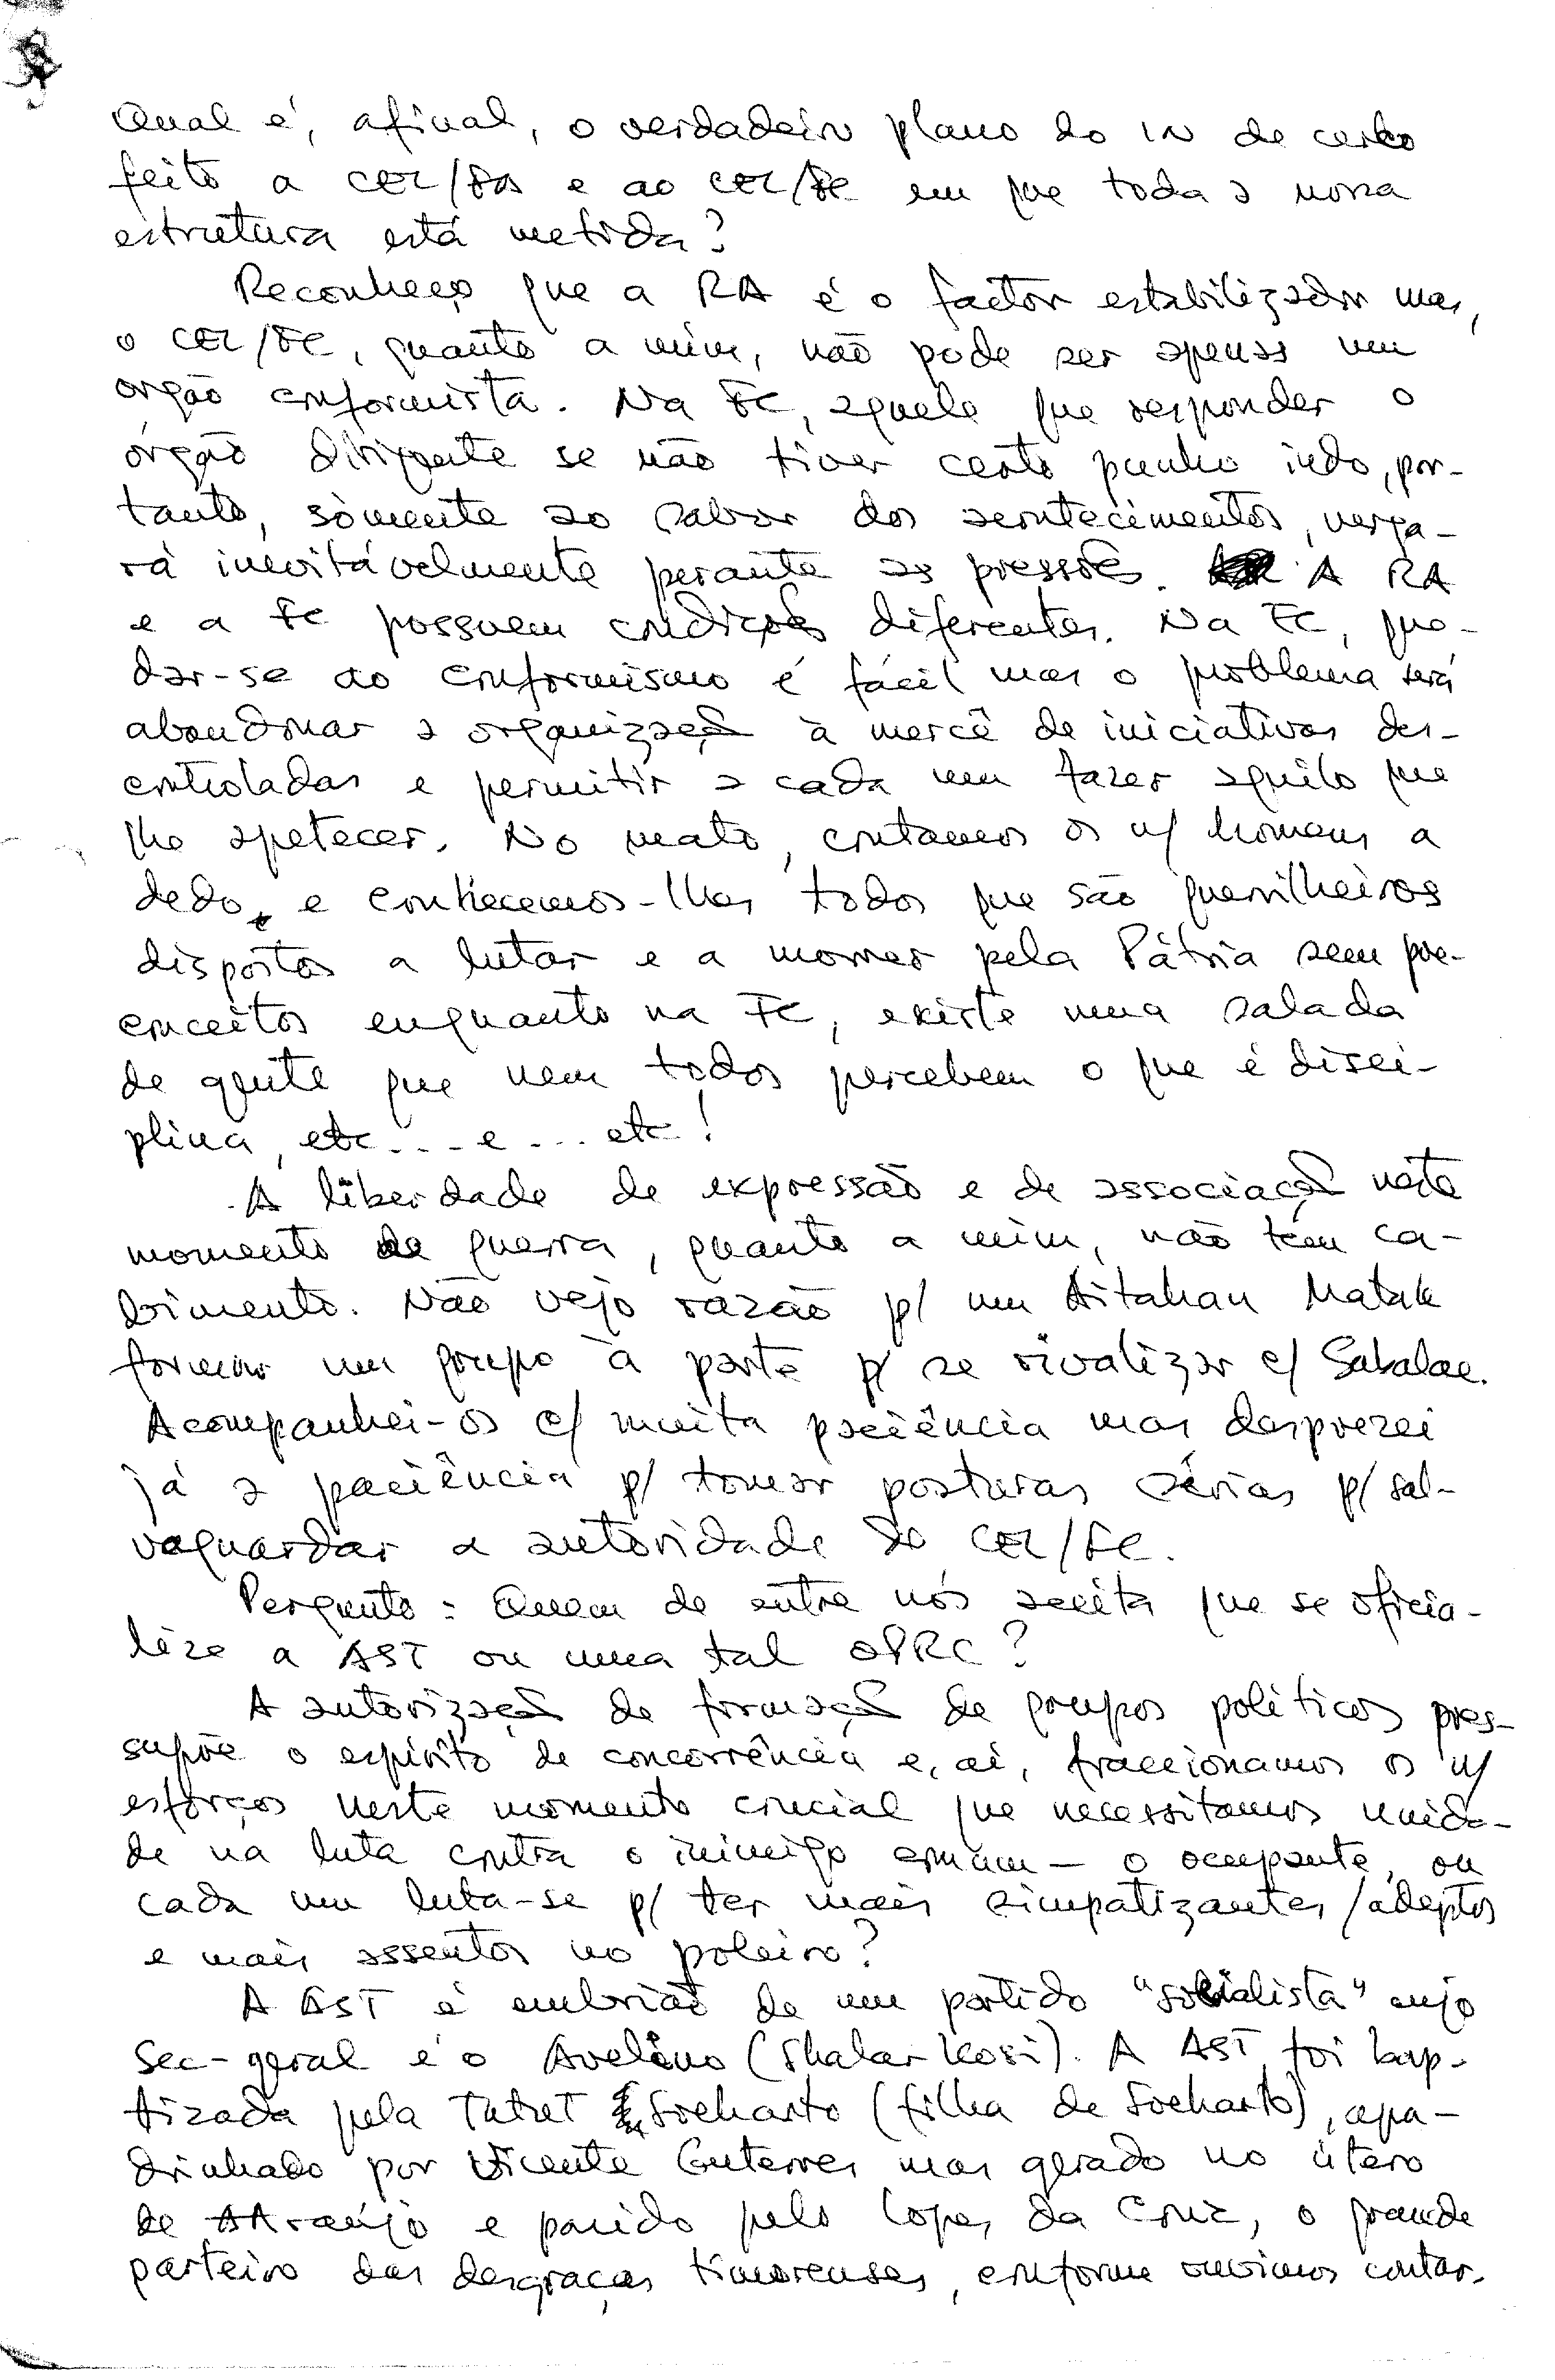 Qual é, afinal, o verdadeiro plano do IN de certo
feito a CEL/FA e ao CEL/FC em que toda a nossa
estrutura está metida?
Reconheço que a RA é o factor estabilizador mas,
o CEL/FC, quanto a mim, não pode ser apenas um
orgão conformista. Na FC, aquele que responder o
órgão dirigente se não tiver certo punho indo, por-
tanto, sòmente ao sabor dos acontecimentos, verga-
rá inevitávelmente perante as pressões. A RA
e a FC possuem condições diferentes. Na FC, que-
dar-se ao conformismo é fácil mas o problema será
abandonar a organização à mercê de iniciativas des-
controladas e permitir a cada um fazer aquilo que
lhe apetecer. No mato, contamos os n/ homens a
dedo, e conhecemos-lhes todos que são guerrilheiros
dispostos a lutar e a morrer pela Pátria sem pre-
conceitos enquanto na FC, existe uma salada
de gente que nem todos percebem o que é disci-
plina, etc... e... etc!
A liberdade de expressão e de associação neste
momento de guerra, quanto a mim, não tem ca-
bimento. Não vejo razão p/ um Aitahan Matak
formar um grupo à parte p/ se rivalizar c/ Sabalae.
Acompanhei-os c/ muita paciência mas desprezei
já a paciência p/ tomar posturas sérias p/ sal-
vaguardar a autoridade do CEL/FC.
Pergunto: Quem de entre nós aceita que se oficia-
lize a AST ou uma tal OPRC?
A autorização de formação de grupos políticos pres-
supõe o espírito de concorrência e, aí, fraccionamos os n/
esforços neste momento crucial que necessitamos unida-
de na luta contra o inimigo comum - o ocupante, ou
cada um luta-se p/ ter mais simpatizantes/adeptos
e mais assentos no poleiro?
A AST é embrião de um partido "socialista" cujo
Sec-geral é o Avelino (Shalar Kosi). A AST foi bap-
tizada pela Tutut Soeharto (filha de Soeharto), apa-
drinhado por Vicente Guterres mas gerado no útero
de Araújo e parido pelo Lopes da Cruz, o grande
parteiro das desgraças timorenses, conforme ouvimos contar.